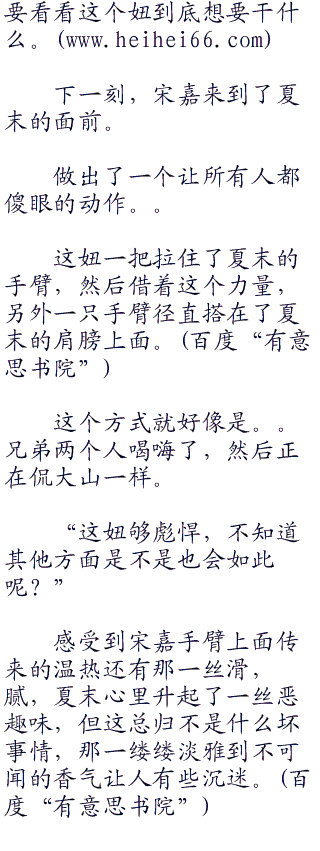 要看看这个妞到底想要干什
么。(www.heihei66.com)
下一刻，宋嘉来到了夏
末的面前。
做出了一个让所有人都
傻眼的动作。。
这妞一把拉住了夏末的
手臂，然后借着这个力量，
另外一只手臂径直搭在了夏
末的肩膀上面。(百度“有意
思书院”)
这个方式就好像是。。
兄弟两个人喝嗨了，然后正
在侃大山一样。
“这妞够彪悍，不知道
其他方面是不是也会如此
呢？”
感受到宋嘉手臂上面传
来的温热还有那一丝滑，
腻，夏末心里升起了一丝恶
趣味，但这总归不是什么坏
事情，那一缕缕淡雅到不可
闻的香气让人有些沉迷。(百
度“有意思书院”)